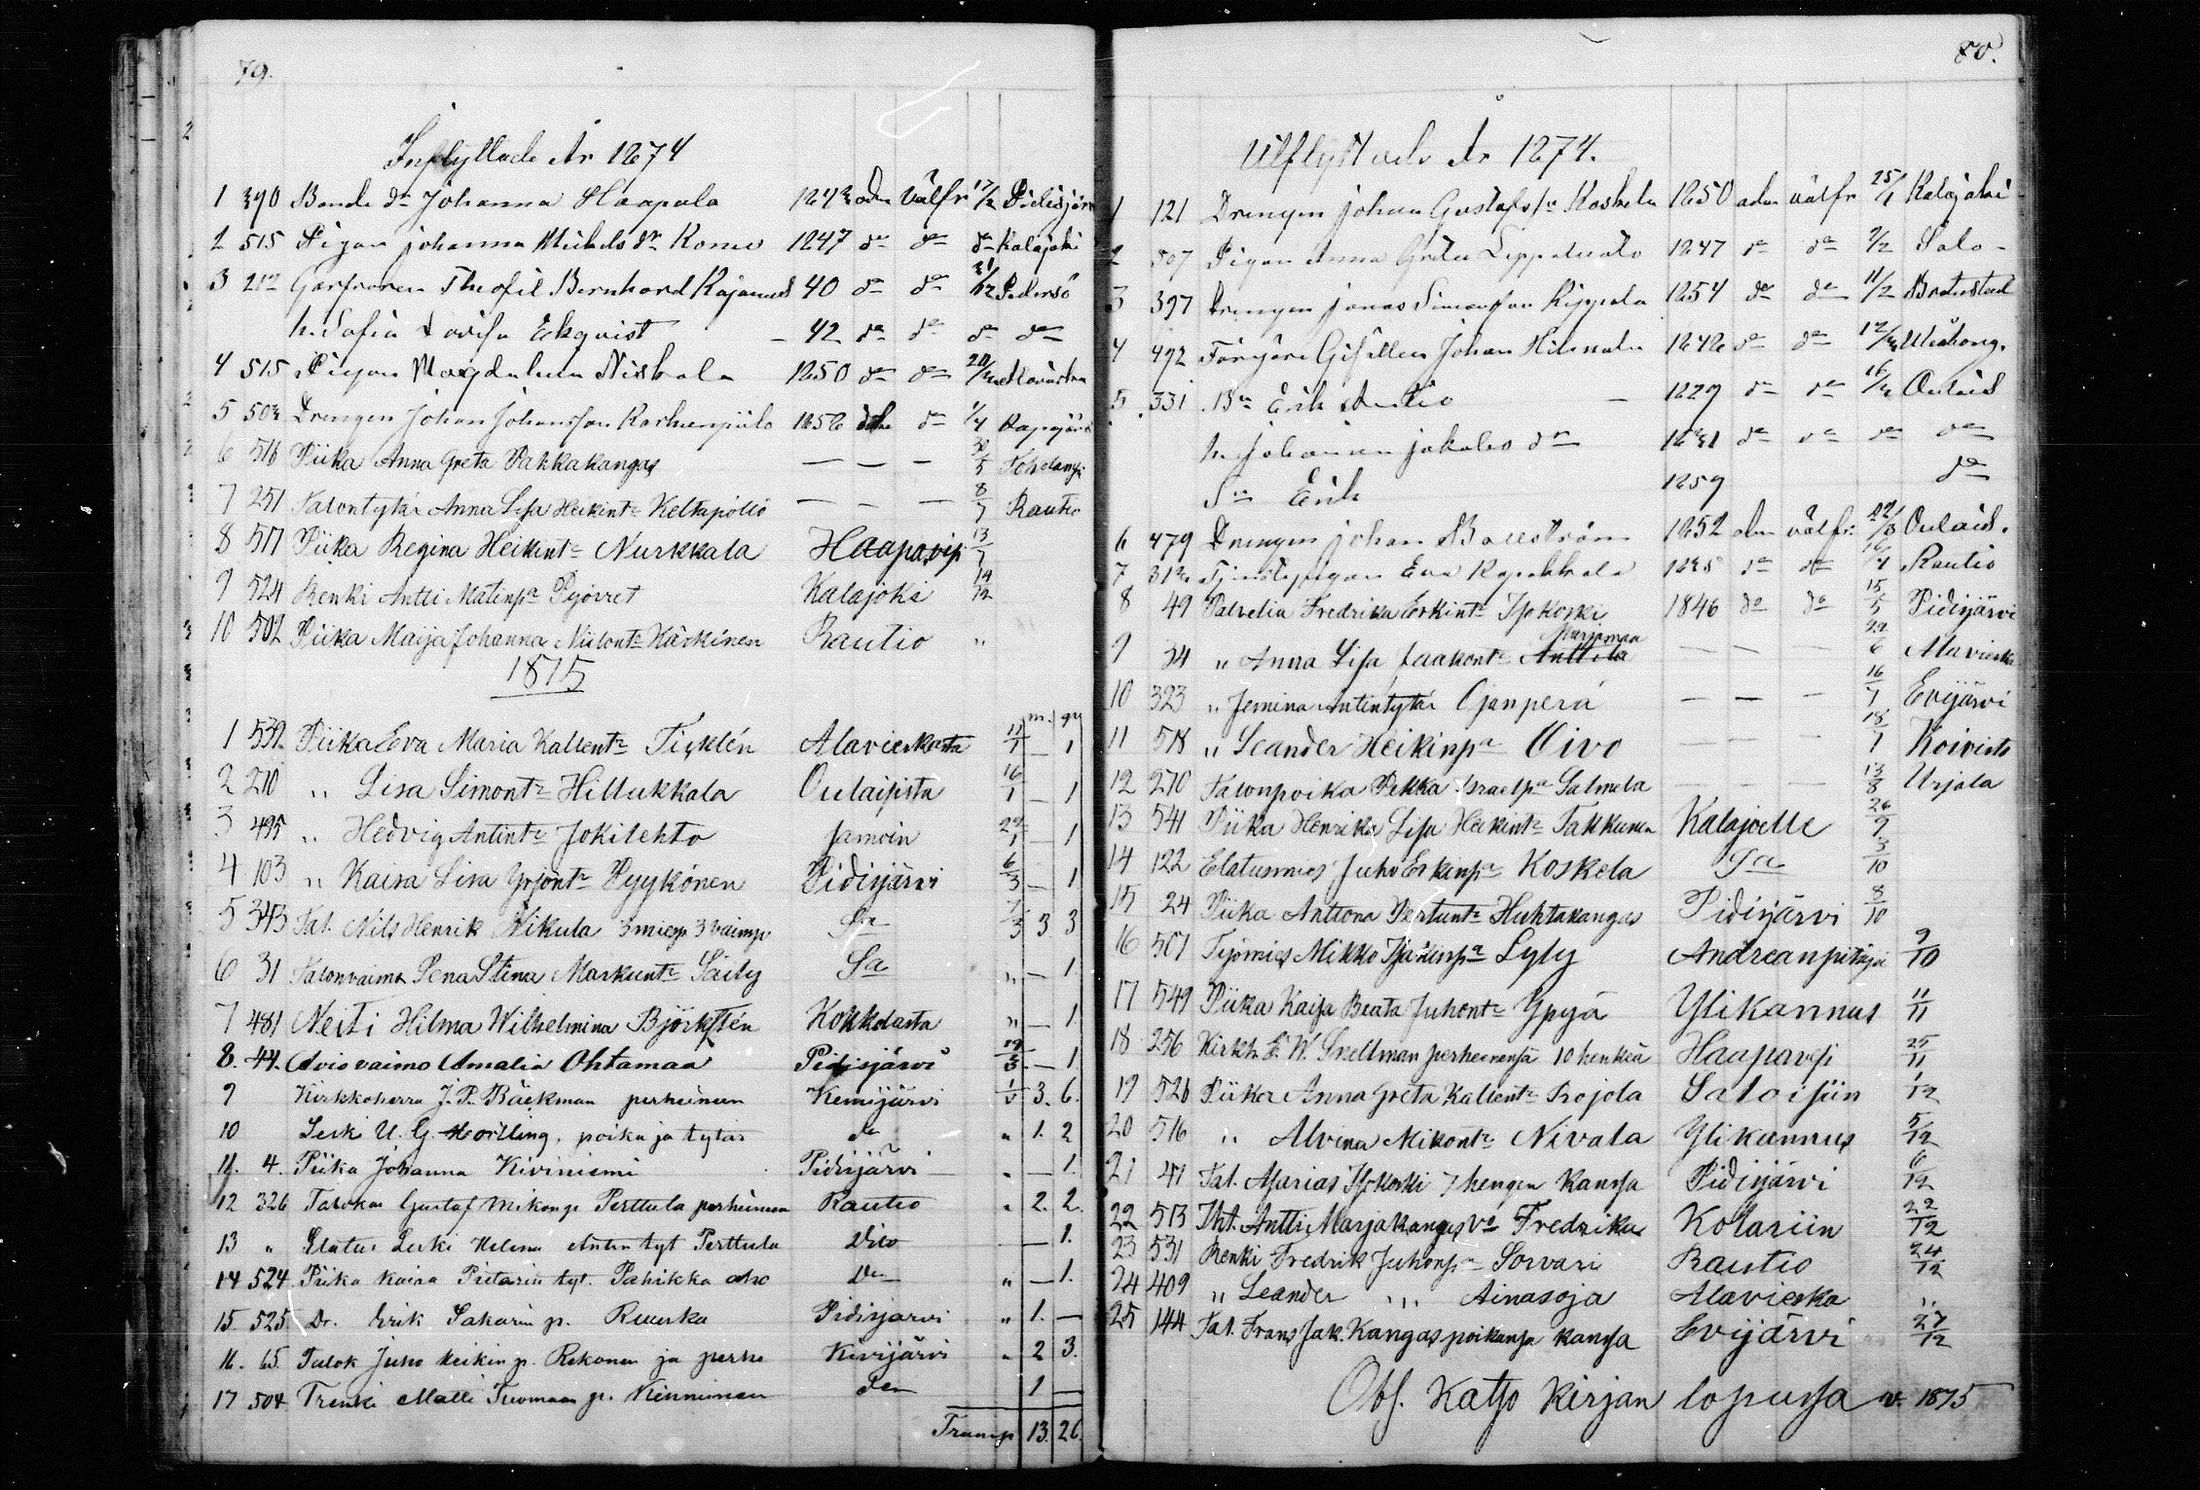 79.
Inflyttade År 1874
1 390 Bonde dr Johanna Haapala 1843 adm välfr 17/2 Pidisjärvi
2 515 Pigan Johanna Mickels dr Kome 1847 do do do Kalajoki
3 212 Garfvaren Theofil Bernhard Kajanus 40 do do 31/12 Pedersö
h. Sofia Lovisa Ekqvist – 42 do do do do
4 515 Pigan Magdalena Niskala 1850 do do Alavieska
5 503 Drengen Johan Johansson 1856 do 1/4
6 516 Piika Anna Greta Pakkakangas — — — 30/5
7 251 Talontytär Anna Lisa Heikint. Keltapöllö — — — 8/7 Rautio
8 517 Piika Regina Heikint. Nurkkala Haapavesi 13/7
9 524 Renki Antti Matinpa Pyörret Kalajoki 14/12
10 502 Piika Maija Johanna Nilont. Kärkinen Rautio "
1875
m. qv
1 539 Piika Eva Maria Kallent. Ticklén Alavieskasta 11/1 — 1
2 210 " Lisa Simont. Hillukkala Oulaisista 16/1 — 1
3 495 " Hedvig Antint. Jokilehto Jamoin 29/1 — 1
4 103 " Kaisa Lisa Yrjönt. Pyykönen Pidisjärvi 6/3 — 1
5 343 Tal. Nils Henrik Nikula 3 miesp 3 vaimp Sa 7/3 3 3
6 31 Talonvaimo Lena Stina Markunt. Säily Sa " — 1
7 481 Neiti Hilma Wilhelmina Björkstén Kokkolasta " — 1
8. 44. Aviovaimo Amalia Ohtamaa Pidisjärvi 19/3 — 1
9 Kirkkoherra J. P. Bäckman perheineen Kemijärvi 1/5 3. 6.
10 Leski U. G. Hoilling, poika ja tytär do " 1. 2
11. 4. Piika Johanna Kiviniemi Pidisjärvi " — 1.
12 326 Talokas Gustaf Mikonp. Perttula perheineen Rautio " 2. 2.
13 " Elatus Leski Helena Antin tyt Perttula Dito — 1.
14 524. Piika Kaisa Pietarin tyt. Pahikka aho Do " — 1.
15. 525 Dr. Erik Sakarin p. Ruuska Pidisjärvi " 1. —
16. 65. Talok Juho Heikin p. Rekonen ja perhe Kivijärvi " 2 3.
17 504 Trenki Malli Tuomaan p. Kinnunen do 1 —
Transp 13. 26.
80.
Utflyttade År 1874.
1 121 Drengen Johan Gustafs sn Koskela 1850 adm välfr 25/1 Kalajoki
2 507 Pigan Anna Greta Leppäluoto 1847 do do 2/2 Salo –
3 397 Drengen Jonas Simonsson Kippola 1854 do do 11/2 Brahestad
4 492 Färgare Gesällen Johan 1842 do do Uleåborg.
5 331 Bn Erik Antio – 1829 do do Oulais
h. Johanna Jakobs dr 1831 do do do do
Sn Erik 1859 do
6 479 Drengen Johan Bollström 1852 adm välfr. Oulais.
7 Tjenstepigan Eva 1835 do do Rautio
8 49 Palvelia Fredrika Erkint. Isokoski 1846 do do 15/5 Pidisjärvi
9 34 " Anna Lisa Jaakont. Anttila Marjamaa — — — 22/6 Alavieska
10 323 " Jemina Antintytär Ojanperä — — — 16/7 Evijärvi
11 518 " Leander Heikinpa Oivo — — — 18/7 Koivisto
12 270 Talonpoika Pekka Israelpa Salmela — — — 13/8 Urjala
13 541 Piika Henrika Lisa Heikint. Takkunen Kalajoelle 26/9
14 122 Elatusmies Juho Erkinpa Koskela Sa 3/10
15 24 Piika Anttona Pertunt. Huhtakangas Pidisjärvi 8/10
16 501 Työmies Mikko Isakinpa Lyly Andreanpitäjä 9/10
17 549 Piika Kaisa Beata Juhont. Ypyä Ylikannus 11/11
18 256 Kirkh. E. W. Snellman perheinensä 10 henkeä Haapavesi 25/11
19 526 Piika Anna Greta Kallent. Rojola Saloisiin 1/12
20 516 " Alvina Mikont. Nivala Ylikannus 5/12
21 41 Tal. Marias Isokoski 7 hengen kanssa Pidisjärvi 6/12
22 513 Iht. Antti Marjakangas va Fredrika Kolariin 22/12
23 531 Renki Fredrik Juhonpa Sorvari Rautio 24/12
24 409 " Leander " " Ainasoja Alavieska "
25 144 Tal. Frans Jak. Kangas poikansa kanssa Evijärvi 27/12
Obs. Katso Kirjan lopussa v. 1875